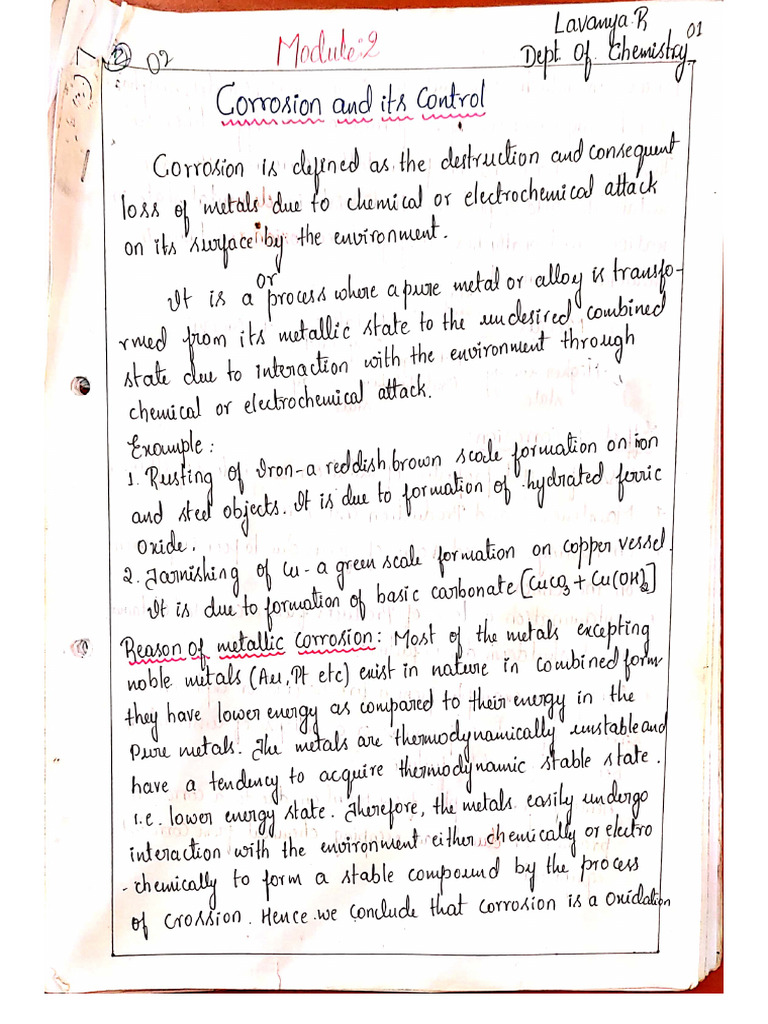 Lavanya.R
01
② 02
Module:2
Dept. Of Chemistry
Corrosion and its Control
Corrosion is defined as the destruction and consequent
loss of metals due to chemical or electrochemical attack
on its surface by the environment.
Or
It is a process where a pure metal or alloy is transfo-
rmed from its metallic state to the undesired combined
state due to interaction with the environment through
chemical or electrochemical attack.
Example:
1. Rusting of Iron - a reddish brown scale formation on iron
and steel objects. It is due to formation of hydrated ferric
Oxide.
2. Tarnishing of Cu - a green scale formation on copper vessel.
It is due to formation of basic carbonate [CuCO3 + Cu(OH)2]
Reason of metallic Corrosion: Most of the metals excepting
noble mitals (Au, Pt etc) exist in nature in combined form
they have lower energy as compared to their energy in the
Pure metals. The metals are thermodynamically unstable and
have a tendency to acquire thermodynamic stable state.
i.e. lower energy state. Therefore, the metals easily undergo
interaction with the environment either chemically or electro
-chemically to form a stable compound by the process
of Crossion. Hence we conclude that Corrosion is a Oxidation